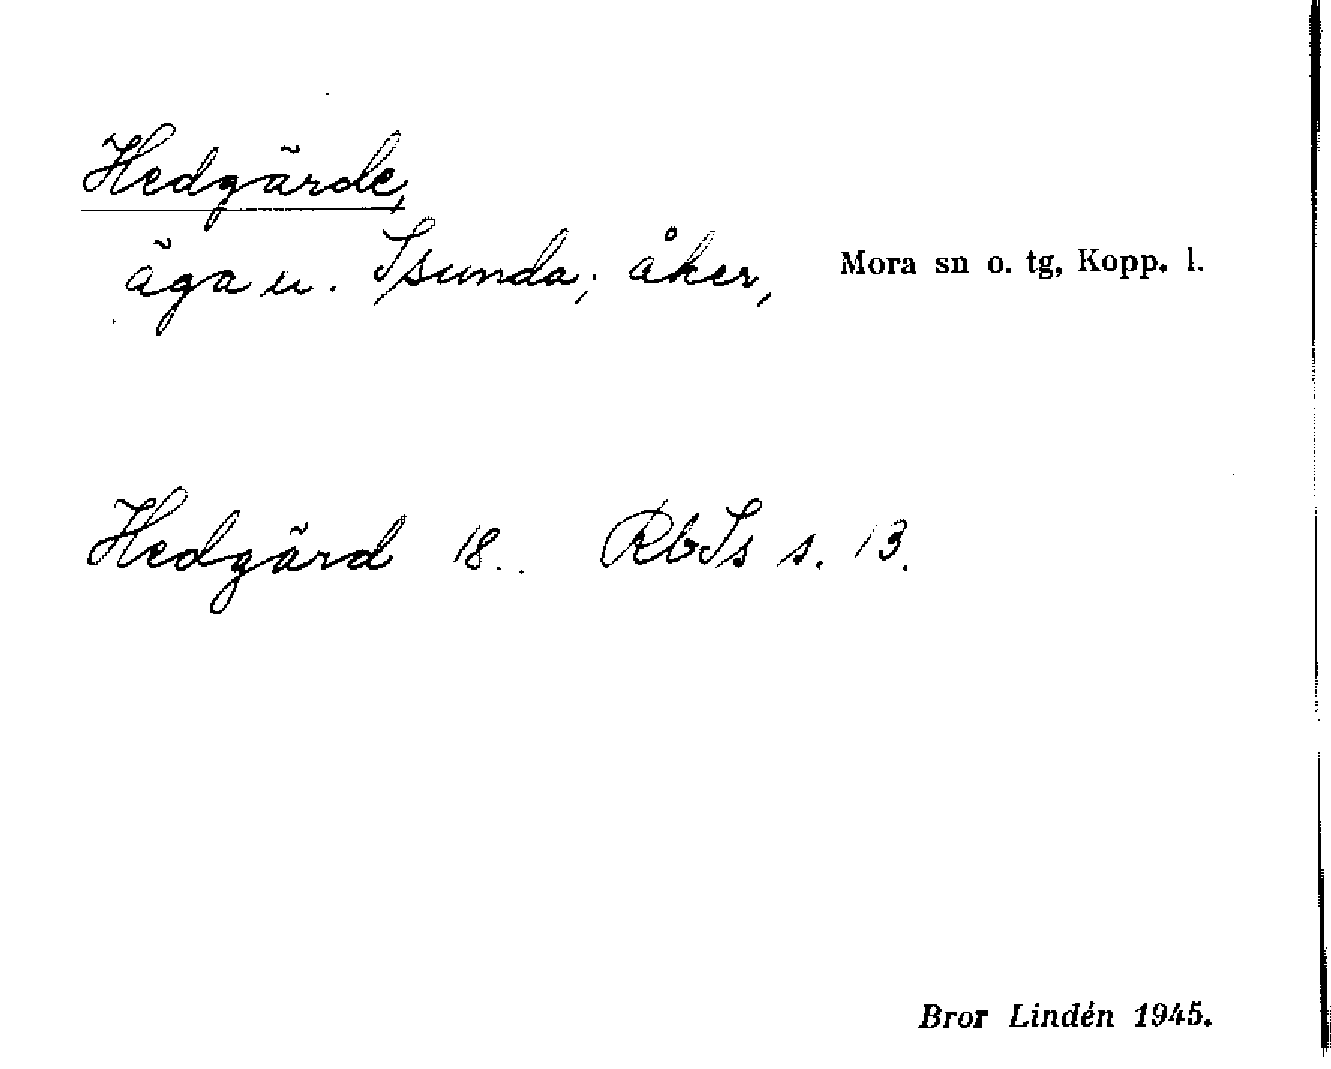 Hedgärde,
äga u. Isunda; åker, Mora sn o. tg, Kopp. l.
Hedgärd 18.. RbIs s. 13.
Bror Lindén 1945.